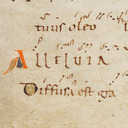 tuus oleo
Alleluia
Diffusa est gra